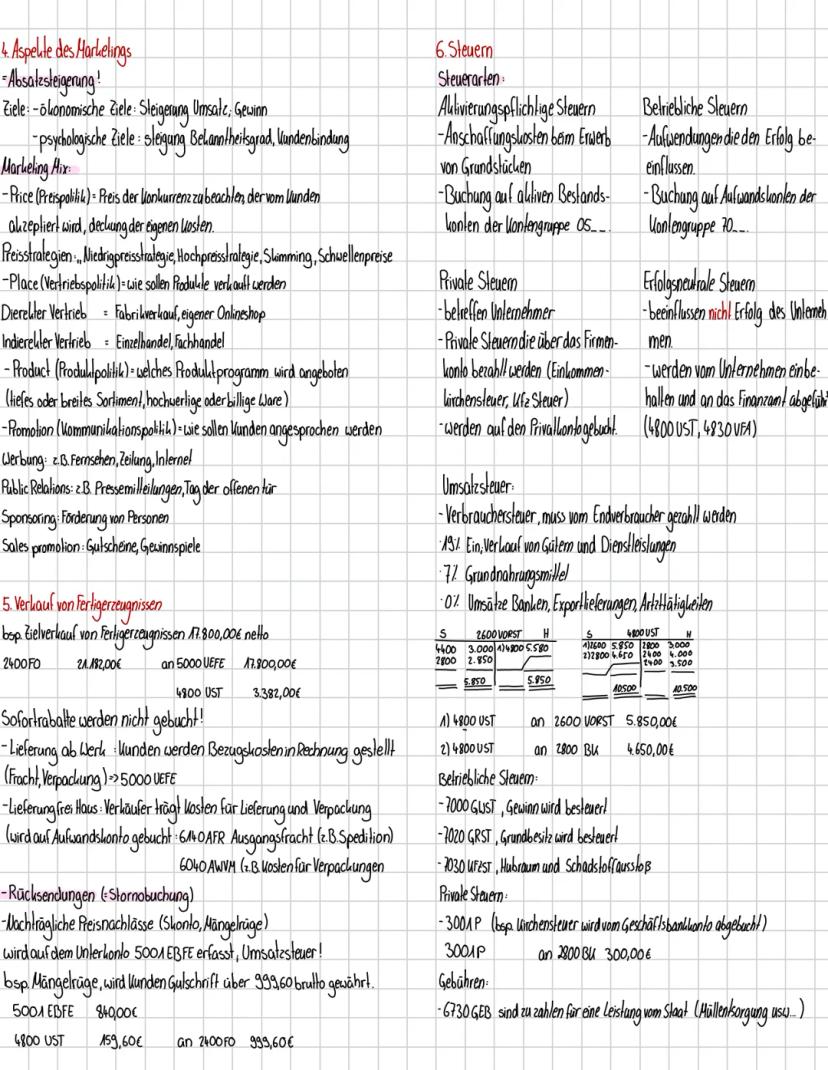 4. Aspekte des Marketings
=Absatzsteigerung!
Ziele: -ökonomische Ziele: Steigerung Umsatz, Gewinn
-psychologische Ziele: steigung Bekanntheitsgrad, Kundenbindung
Marketing Mix:
-Price (Preispolitik)= Preis der Konkurrenz zu beachten, der vom Kunden
akzeptiert wird, deckung der eigenen Kosten.
Preisstrategien:,, Niedrigpreisstrategie, Hochpreisstrategie, Skimming, Schwellenpreise
-Place (Vertriebspolitik)=wie sollen Produkte verkauft werden
Dierekter Vertrieb = Fabrikverkauf, eigener Onlineshop
Indierekter Vertrieb = Einzelhandel, Fachhandel
-Product (Produktpolitik)=welches Produktprogramm wird angeboten
(tiefes oder breites Sortiment, hochwertige oder billige Ware)
-Promotion (Kommunikationspolitik)=wie sollen Kunden angesprochen werden
Werbung: z.B. Fernsehen, Zeitung, Internet
Public Relations: z.B. Pressemitteilungen, Tag der offenen tür
Sponsoring: Förderung von Personen
Sales promotion: Gutscheine, Gewinnspiele
5. Verkauf von Fertigerzeugnissen
bsp. Zielverkauf von Fertigerzeugnissen 17.800,00€ netto
2400 FO 21.182,00€ an 5000 UEFE 17.800,00€
4800 UST 3.382,00€
Sofortrabatte werden nicht gebucht!
-Lieferung ab Werk: Kunden werden Bezugskosten in Rechnung gestellt
(Fracht, Verpackung)=>5000 UEFE
-Lieferung frei Haus: Verkäufer trägt Kosten für Lieferung und Verpackung
(wird auf Aufwandskonto gebucht: 6140 AFR Ausgangsfracht (z.B. Spedition)
6040 AWVM (z.B. Kosten für Verpackungen
-Rücksendungen (=Stornobuchung)
-Nachträgliche Preisnachlässe (Skonto, Mängelrüge)
wird auf dem Unterkonto 5001 EBFE erfasst, Umsatzsteuer!
bsp. Mängelrüge, wird Kunden Gutschrift über 999,60 brutto gewährt.
5001 EBFE 840,00€
4800 UST 159,60€ an 2400 FO 999,60€
6. Steuern
Steuerarten:
Aktivierungspflichtige Steuern
-Anschaffungskosten beim Erwerb
von Grundstücken
-Buchung auf aktiven Bestands-
konten der Kontengruppe 05_ _.
Betriebliche Steuern
-Aufwendungen die den Erfolg be-
einflussen.
-Buchung auf Aufwandskonten der
Kontengruppe 70_ _.
Private Steuern
-betreffen Unternehmer
-Private Steuern die über das Firmen-
konto bezahlt werden (Einkommen-
kirchensteuer, Kfz Steuer)
-werden auf den Privatkonto gebucht.
Erfolgsneutrale Steuern
-beeinflussen nicht Erfolg des Unterneh
men.
-werden vom Unternehmen einbe-
halten und an das Finanzamt abgeführ
(4800 UST, 4830 VFA)
Umsatzsteuer:
-Verbrauchersteuer, muss vom Endverbraucher gezahlt werden
·19% Ein, Verkauf von Gütern und Dienstleistungen
·7% Grundnahrungsmittel
·0% Umsätze Banken, Exportlieferungen, Artzttätigkeiten
S 2600 VORST H
4400 3.000 1)4800 5.580
2800 2.850
5.850 5.850
S 4800 UST H
1)2600 5.850 2800 3.000
2)2800 4.650 2400 4.000
2400 3.500
10.500 10.500
1) 4800 UST an 2600 VORST 5.850,00€
2) 4800 UST an 2800 BK 4.650,00€
Betriebliche Steuern:
-7000 GWST, Gewinn wird besteuert
-7020 GRST, Grundbesitz wird besteuert
-7030 KFZST, Hubraum und Schadstoffausstoß
Private Steuern:
-3001 P (bsp. Kirchensteuer wird vom Geschäftsbankkonto abgebucht)
3001 P an 2800 BK 300,00€
Gebühren:
-6730 GEB sind zu zahlen für eine Leistung vom Staat (Müllentsorgung usw...)